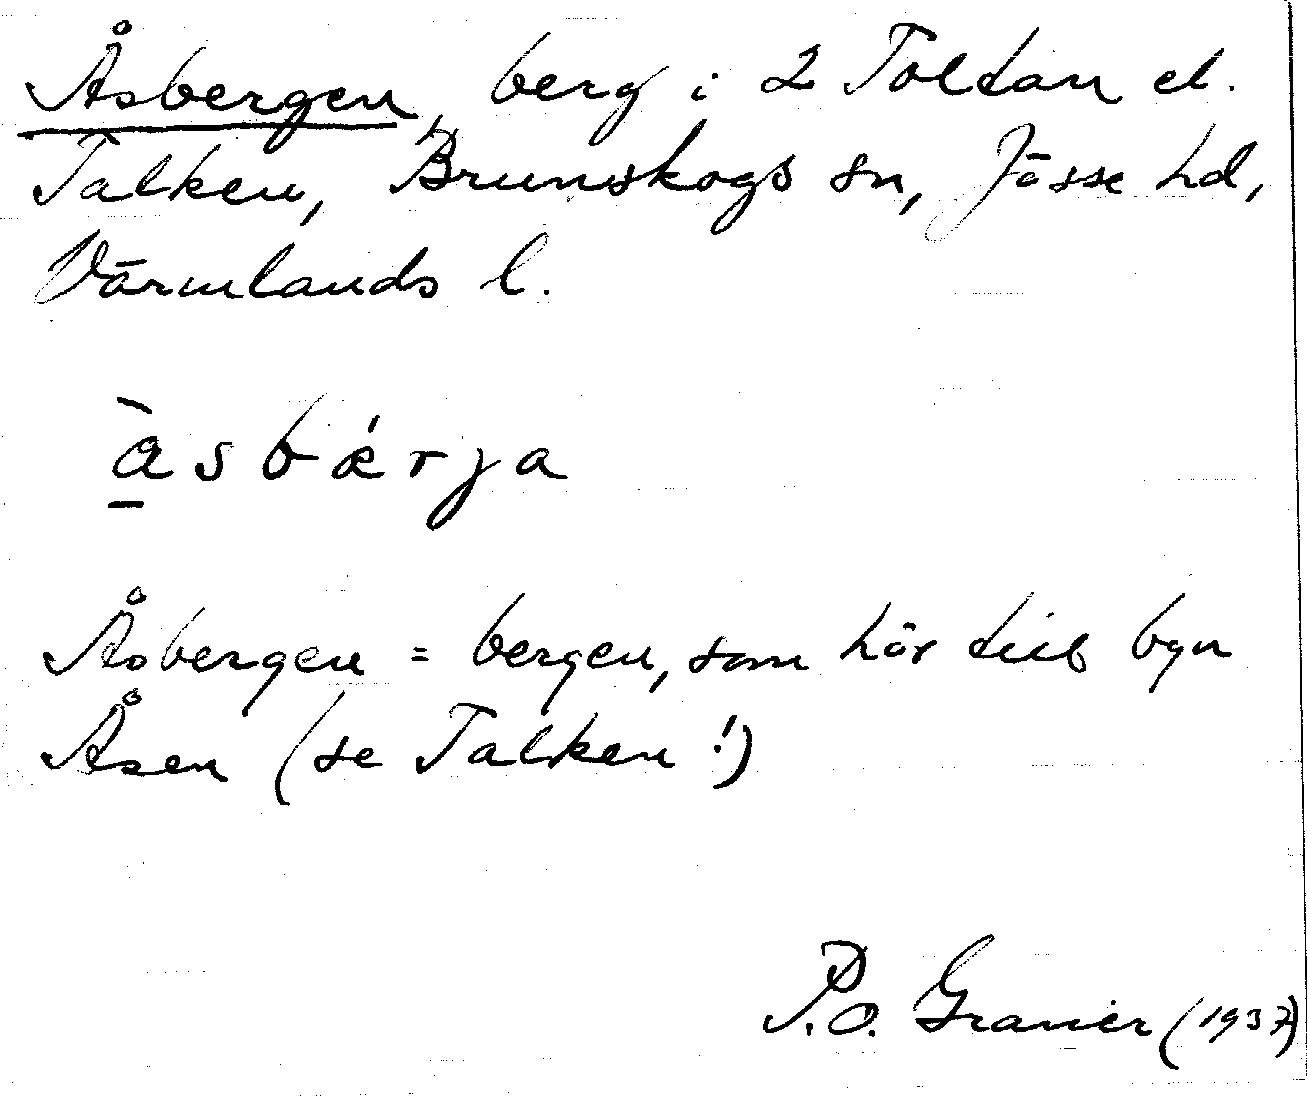 Åsbergen, berg i 2 Toltan el.
Talken, Brunskogs sn, Jösse hd,
Värmlands l.
à̱sbǽrja
Åsbergen = bergen, som hör till byn
Åsen (se Talken!)
P.O. Granér (1937)